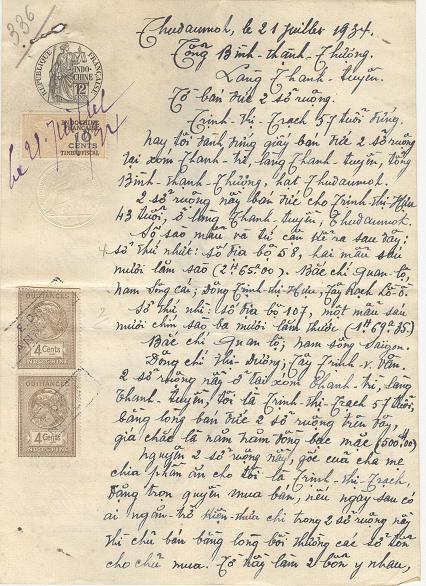 336
RÉPUBLIQUE FRANÇAISE
INDO-CHINE
12 c
INDOCHINE
FRANÇAISE
CENTS
TIMBRE FISCAL
Thudaumot, le 21 juillet 1934.
Tổng Bình-thành-Thượng.
Làng Thanh-tuyền.
Tờ bán đức 2 sở ruộng.
Trịnh-thị-Trạch 57 tuổi đứng.
Nay tôi đành đứng giấy bán đức 2 sở ruộng
tại xóm Thanh-trì, làng Thanh-tuyền, tổng
Bình-thành-Thượng, hạt Thudaumot.
2 sở ruộng nầy bán đức cho Trịnh-thị-Hữu
43 tuổi, ở làng Thanh-tuyền, Thudaumot.
Số sào mẫu và tứ cận kể ra sau đây:
Sở thứ nhứt: số địa bộ 58, hai mẫu sáu
mươi lăm sào (2H65a00). Bắc chỉ Quan-lộ,
Nam Sông cái; Đông Trịnh-thị-Hữu; Tây Rạch
Sở thứ nhì: số địa bộ 107, một mẫu sáu
mươi chín sào ba mươi lăm thước (1H69a35)
Bắc chỉ Quan lộ; nam sông Saigon.
Đông chỉ Thị-Dường; Tây Trịnh-v-Vân.
2 sở ruộng nầy ở tại xóm Thanh-trì, làng
Thanh-tuyền, tôi là Trịnh-thị-Trạch 57 tuổi,
bằng lòng bán đức 2 sở ruộng trên đây,
giá chắc là năm trăm đồng bạc mặt (500$00)
Nguyên 2 sở ruộng nầy, gốc của cha mẹ
chia phần ăn cho tôi là Trịnh-thị-Trạch,
Đặng trọn quyền mua bán, nếu ngày sau có
ai ngăn-trở kiện-thưa chi trong 2 sở ruộng nầy
thì chủ bán bằng lòng bồi thường các sở tổn
cho chủ mua. Tờ nầy làm 2 bổn y nhau,
QUITTANCES
4 Cents
INDO-CHINE
QUITTANCES
4 Cents
INDO-CHINE